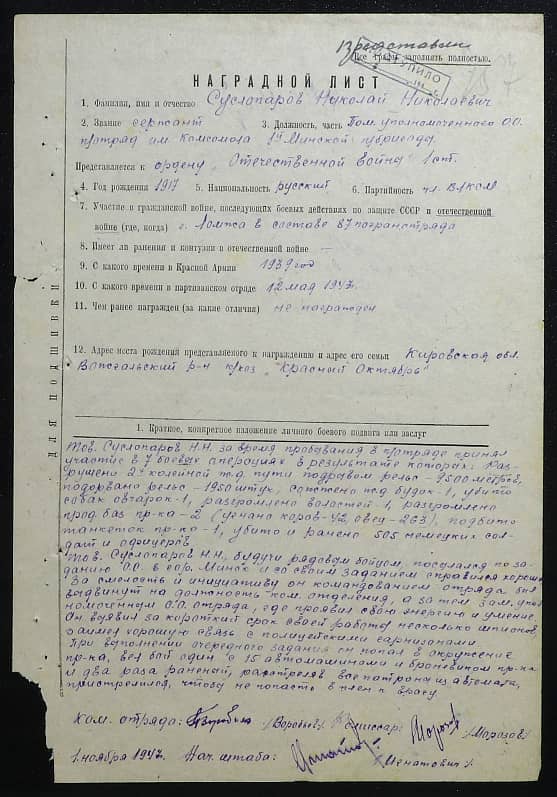 Представлен
Все графы заполнять полностью.
НАГРАДНОЙ ЛИСТ
1. Фамилия, имя и отчество Суслопаров Николай Николаевич
2. Звание сержант 3. Должность, часть Пом. уполномоченного О.О.
п/отряд им. Комсомола 1й Минской п/бригады.
Представляется к ордену „Отечественной войны" 1 ст.
4. Год рождения 1917 5. Национальность русский 6. Партийность чл. ВЛКСМ
7. Участие в гражданской войне, последующих боевых действиях по защите СССР и отечественной
войне (где, когда) г. Ломжа в составе 87 погранотряда
8. Имеет ли ранения и контузии в отечественной войне –
9. С какого времени в Красной Армии 1939 год
10. С какого времени в партизанском отряде 12 мая 1943г.
11. Чем ранее награжден (за какие отличия) не награжден
12. Адрес места рождения представляемого к награждению и адрес его семьи Кировская обл.
р-н к/хоз "Красный Октябрь"
ДЛЯ ПОДШИВКИ
1. Краткое, конкретное изложение личного боевого подвига или заслуг
Тов. Суслопаров Н.Н. за время пребывания в п/отряде принял
участие в 7 боевых операциях в результате которых: Раз-
рушено 2х колейной ж.д. пути подрывом рельс - 9500 метров,
подорвано рельс - 1950 штук, сожжено ж.д. будок - 1, убито
собак овчарок - 1, разгромлено волостей - 1, разгромлено
прод. баз пр-ка - 2 (угнано коров - 42, овец - 263), подбито
танкеток пр-ка - 1, убито и ранено 505 немецких сол-
дат и офицеров.
Тов. Суслопаров Н.Н. будучи рядовым бойцом, посылался по за-
данию О.О. в гор. Минск и со своим заданием справился хорошо
За смелость и инициативу он командованием отряда был
выдвинут на должность ком. отделения, а затем зам. упол
номоченным О.О. отряда, где проявил свою энергию и умение
Он выявил за короткий срок своей работы несколько шпионов,
и имел хорошую связь с полицейскими гарнизонами
При выполнении очередного задания он попал в окружение
пр-ка, вел бой один с 15 автомашинами и броневиком пр-ка
и два раза раненый, расстреляв все патроны из автомата,
пристрелился, чтобы не попасть в плен к врагу.
Ком. отряда: /Воробьев/. Комиссар: /Морозов/
1 ноября 1943г. Нач. штаба: /Игнатович/.